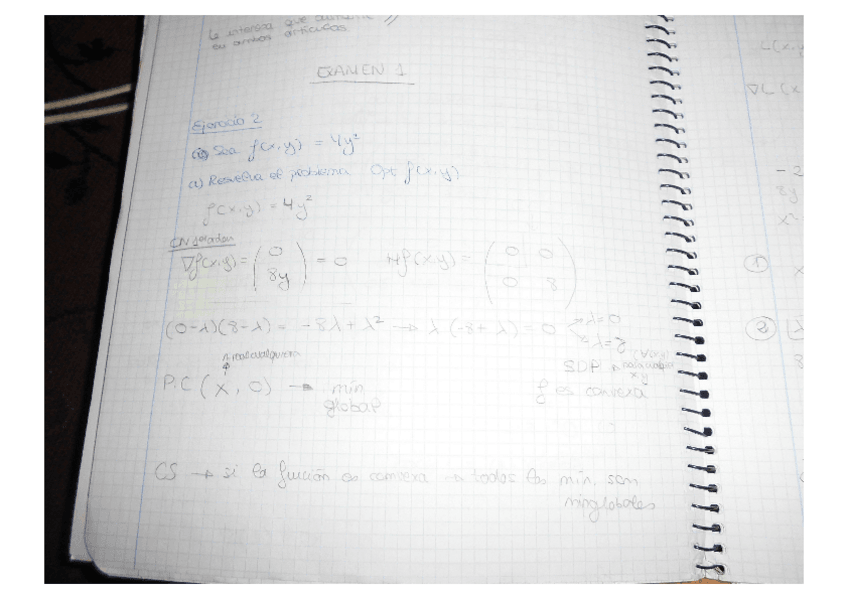 le interesa que aumente //
en ambos artículos
EXAMEN 1
Ejercicio 2
(i) Sea f(x,y) = 4y²
a) Resuelva el problema Opt f(x,y)
f(x,y) = 4y²
CN 1er orden
∇f(x,y) = (0 8y) = 0 Hf(x,y) = (0 0 0 8)
(0-λ)(8-λ) = -8λ+λ² → λ(-8+λ) = 0 λ=0
λ=8
x real cualquiera
SDP
x y
P.C (x, 0) → mín
global
f es convexa
CS → si la función es convexa → todos los mín. son
mín globales
L(x,y
∇L(x
-2
8y
x²-
①
x
②